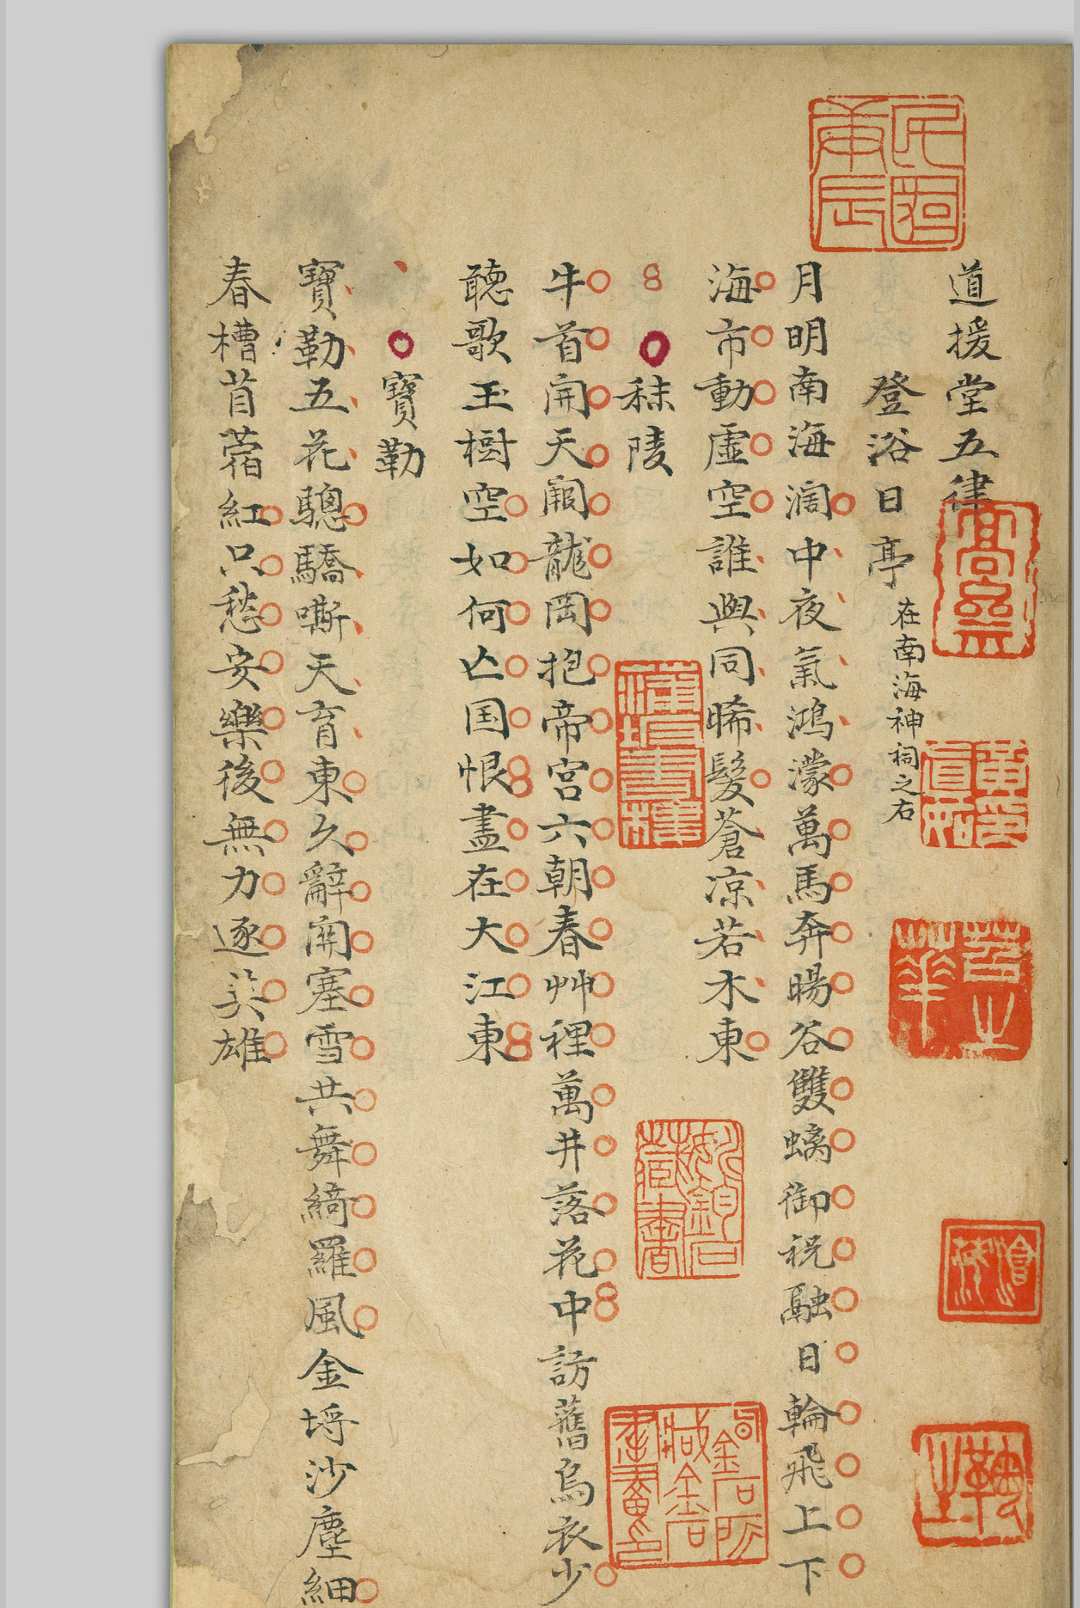 道援堂五律
登浴日亭在南海神祠之右
月明南海濶中夜氣鴻濛萬馬奔暘谷雙螭御祝融日輪飛上下
海市動虛空誰與同晞髮蒼凉若木東
秣陵
牛首開天闕龍岡抱帝宮六朝春艸裡萬井落花中訪舊烏衣少
聽歌玉樹空如何亾国恨盡在大江東
寶勒
寶勒五花驄驕嘶天育東久辭關塞雪共舞綺羅風金埒沙塵細
春槽苜蓿紅只愁安樂後無力逐英雄